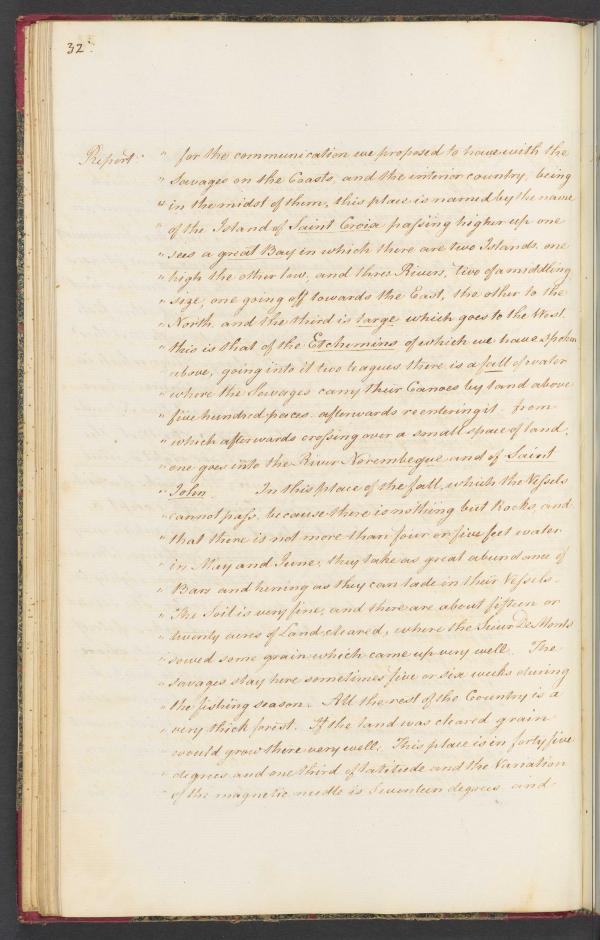 32.
Report " for the communication we proposed to have with the
" Savages on the Coasts, and the interior country, being
" in the midst of them, this place is named by the name
" of the Island of Saint Croix passing higher up one
" sees a great Bay in which there are two Islands. one
" high the other low, and three Rivers, two of a middling
" size, one going off towards the East, the other to the
" North, and the third is large which goes to the West.
" this is that of the Etchemins of which we have spoken
" above, going into it two leagues there is a fall of water
" where the Savages carry their Canoes by land above
" five hundred paces. afterwards reentering it from
" which afterwards crossing over a small space of land,
" one goes into the River Norembegue and of Saint
" John. In this place of the fall, which the Vessels
" cannot pass, because there is nothing but Rocks, and
" that there is not more than four or five feet water
" in May and June, they take as great abundance of
" Bars and herring as they can lade in their Vessels.
" The Soil is very fine, and there are about fifteen or
" twenty acres of Land cleared, where the Sieur De Monts
" sowed some grain which came up very well. The
" savages stay here sometimes five or six weeks during
" the fishing season. All the rest of the Country is a
" very thick forest. If the land was cleared grain
" would grow there very well. This place is in forty five
" degrees and one third of latitude and the Variation
" of the magnetic needle is Seventeen degrees and